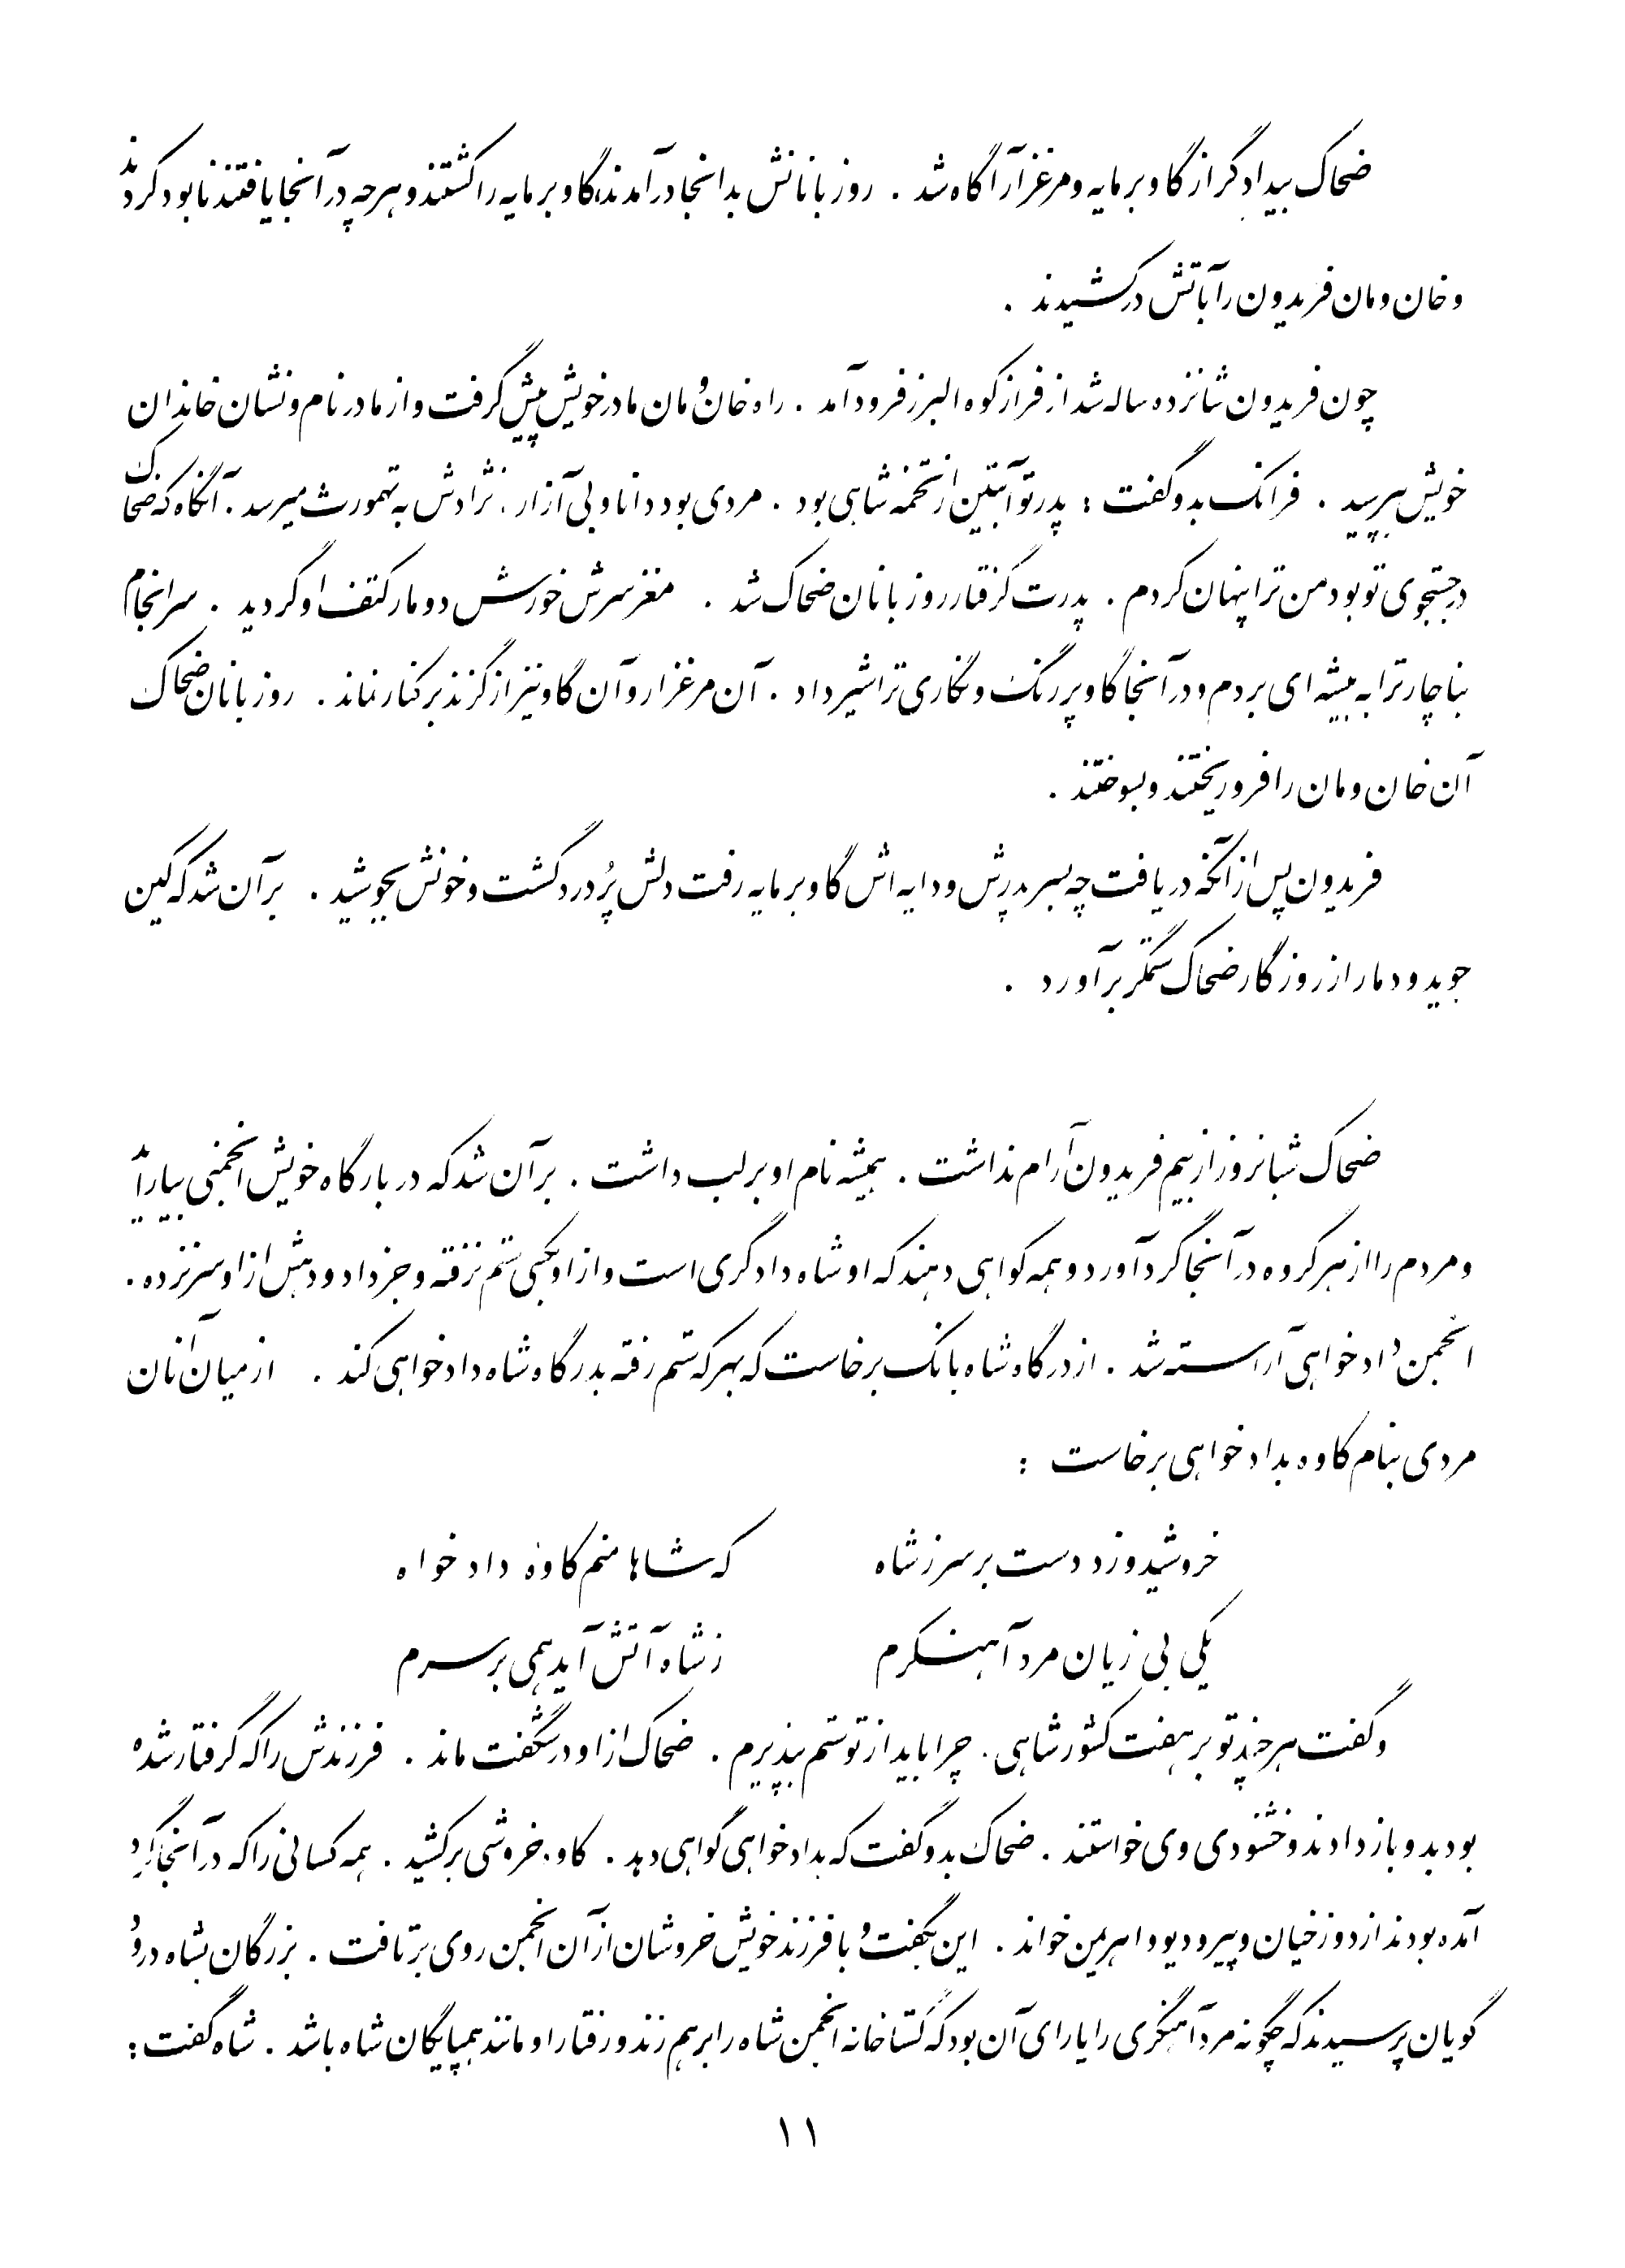 ضحاک بیدادگر از گاو برمایه و مرغزار آگاه شد . روزبانانش بدانجا درآمدند، گاو برمایه را کشتند و هرچه در آنجا یافتند نابود کردند
و خان و مان فریدون را بآتش درکشیدند .
چون فریدون شانزده ساله شد از فراز کوه البرز فرود آمد . راه خان و مان مادر خویش پیش گرفت و از مادر نام و نشان خاندان
خویش بپرسید . فرانک بدو گفت : پدر تو آبتین از تخمه شاهی بود . مردی بود دانا و بی آزار . نژادش به تهمورث میرسد . آنگاه که ضحاک
در جستجوی تو بود من ترا پنهان کردم . پدرت گرفتار روزبانان ضحاک شد . مغز سرش خورش دو مار کتف او گردید . سرانجام
بناچار ترا به بیشه ای بردم و در آنجا گاو پر رنگ و نگاری ترا شیر داد . آن مرغزار و آن گاو نیز از گزند برکنار نماند . روزبانان ضحاک
آن خان و مان را فرو ریختند و بسوختند .
فریدون پس از آنکه دریافت چه بسر پدرش و دایه اش گاو برمایه رفت دلش پُر درد گشت و خونش بجوشید . برآن شد که کین
جوید و دمار از روزگار ضحاک ستمگر برآورد .
ضحاک شبانروز از بیم فریدون آرام نداشت . همیشه نام او بر لب داشت . برآن شد که در بارگاه خویش انجمنی بیاراید
و مردم را از هر گروه در آنجا گرد آورد و همه گواهی دهند که او شاه دادگری است و از او بکسی ستم نرفته و جز داد و دهش از او سر نزده .
انجمن داد خواهی آراسته شد . از درگاه شاه بانگ برخاست که بهرکه ستم رفته بدرگاه شاه دادخواهی کند . از میان آنان
مردی بنام کاوه بداد خواهی برخاست :
خروشید و زد دست بر سر ز شاه که شاها منم کاوهٔ داد خواه
یکی بی زیان مرد آهنگرم ز شاه آتش آید همی بر سرم
و گفت هرچند تو بر هفت کشور شاهی . چرا باید از تو ستم بپذیرم . ضحاک از او در شگفت ماند . فرزندش را که گرفتار شده
بود بدو باز دادند و خشنودی وی خواستند . ضحاک بدو گفت که بداد خواهی گواهی دهد . کاوه خروشی برکشید . همه کسانی را که در آنجا گرد
آمده بودند از دوزخیان و پیرو دیو و اهریمن خواند . این بگفت و با فرزند خویش خروشان از آن انجمن روی برتافت . بزرگان بشاه درود
گویان پرسیدند که چگونه مرد آهنگری را یارای آن بود که گستاخانه انجمن شاه را برهم زند و رفتار او مانند همپایگان شاه باشد . شاه گفت :
۱۱